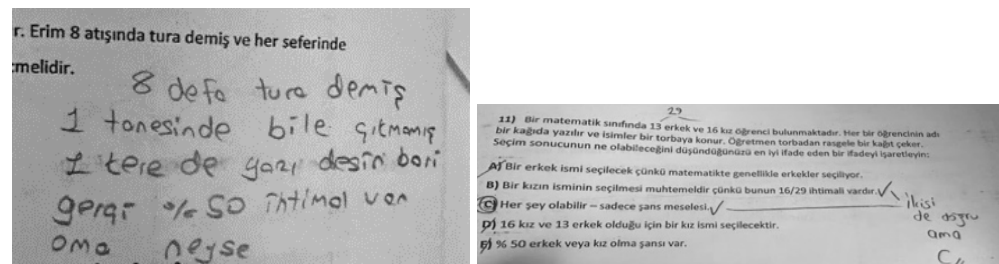 r. Erim 8 atışında tura demiş ve her seferinde
melidir.
8 defa tura demiş
1 tanesinde bile çıkmamış
1 tere de yazı desin bari
gerçi %50 ihtimal var
ama neyse
29
11) Bir matematik sınıfında 13 erkek ve 16 kız öğrenci bulunmaktadır. Her bir öğrencinin adı
bir kağıda yazılır ve isimler bir torbaya konur. Öğretmen torbadan rasgele bir kağıt çeker.
Seçim sonucunun ne olabileceğini düşündüğünüzü en iyi ifade eden bir ifadeyi işaretleyin:
A) Bir erkek ismi seçilecek çünkü matematikte genellikle erkekler seçiliyor.
B) Bir kızın isminin seçilmesi muhtemeldir çünkü bunun 16/29 ihtimali vardır.
C) Her şey olabilir – sadece şans meselesi.
D) 16 kız ve 13 erkek olduğu için bir kız ismi seçilecektir.
E) % 50 erkek veya kız olma şansı var.
ikisi
de doğru
ama
C